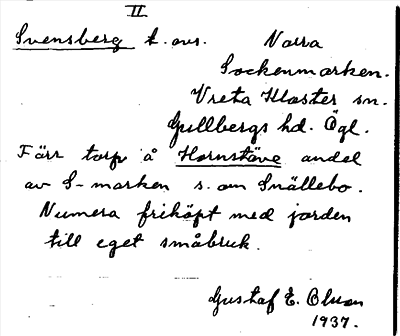 II
Svensberg t. avs. Norra
Sockenmarken.
Vreta Kloster sn.
Gullbergs hd. Ögl.
Förr torp å Hornstäve andel
av S-marken s. om Snällebo.
Numera friköpt med jorden
till eget småbruk.
Gustaf E. Olsson
1937.